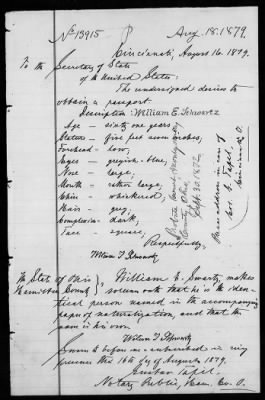 No 13915 P Aug. 18. 1879.
Cincinnati, August 16, 1879.
To the Secretary of State
of the United States:
The undersigned desires to
obtain a passport.
Description: William E. Schwartz
Age – sixty one years,
Stature – five feet seven inches,
Forehead – low,
Eyes – greyish-blue,
Nose – large;
Mouth – rather large,
Chin – whiskered,
Hair – grey,
Complexion – dark,
Face – square,
Probate Court, Montgomery
County, Ohio,
Sept. 30. 1872
Pass address in care of
Cincinnati, O.
Respectfully,
William E. Schwartz
The State of Ohio } William E. Swartz makes
Hamilton County } solemn oath that he is the iden-
tical person named in the accompanying
paper of naturalization, and that the
same is his own.
William E. Schwartz
Sworn to before me & subscribed in my
presence this 16th day of August 1879.
Gustav Tafel
Notary Public, Ham. Co. O.